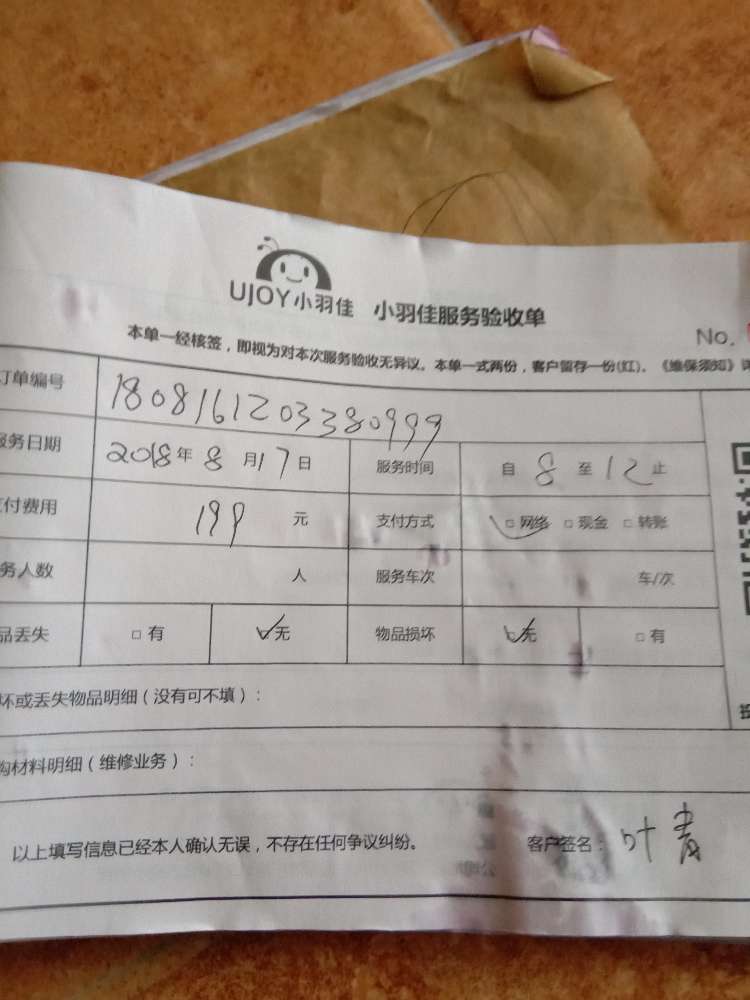 UJOY小羽佳 小羽佳服务验收单
No.
本单一经核签，即视为对本次服务验收无异议。本单一式两份，客户留存一份(红)。《维保须知》详
订单编号 1808161203380999
服务日期 2018年8月17日 服务时间 自8至12止
支付费用 199元 支付方式 □网络 □现金 □转账
务人数 人 服务车次 车/次
品丢失 □有 □无 物品损坏 □无 □有
坏或丢失物品明细（没有可不填）：
购材料明细（维修业务）：
以上填写信息已经本人确认无误，不存在任何争议纠纷。 客户签名：叶青